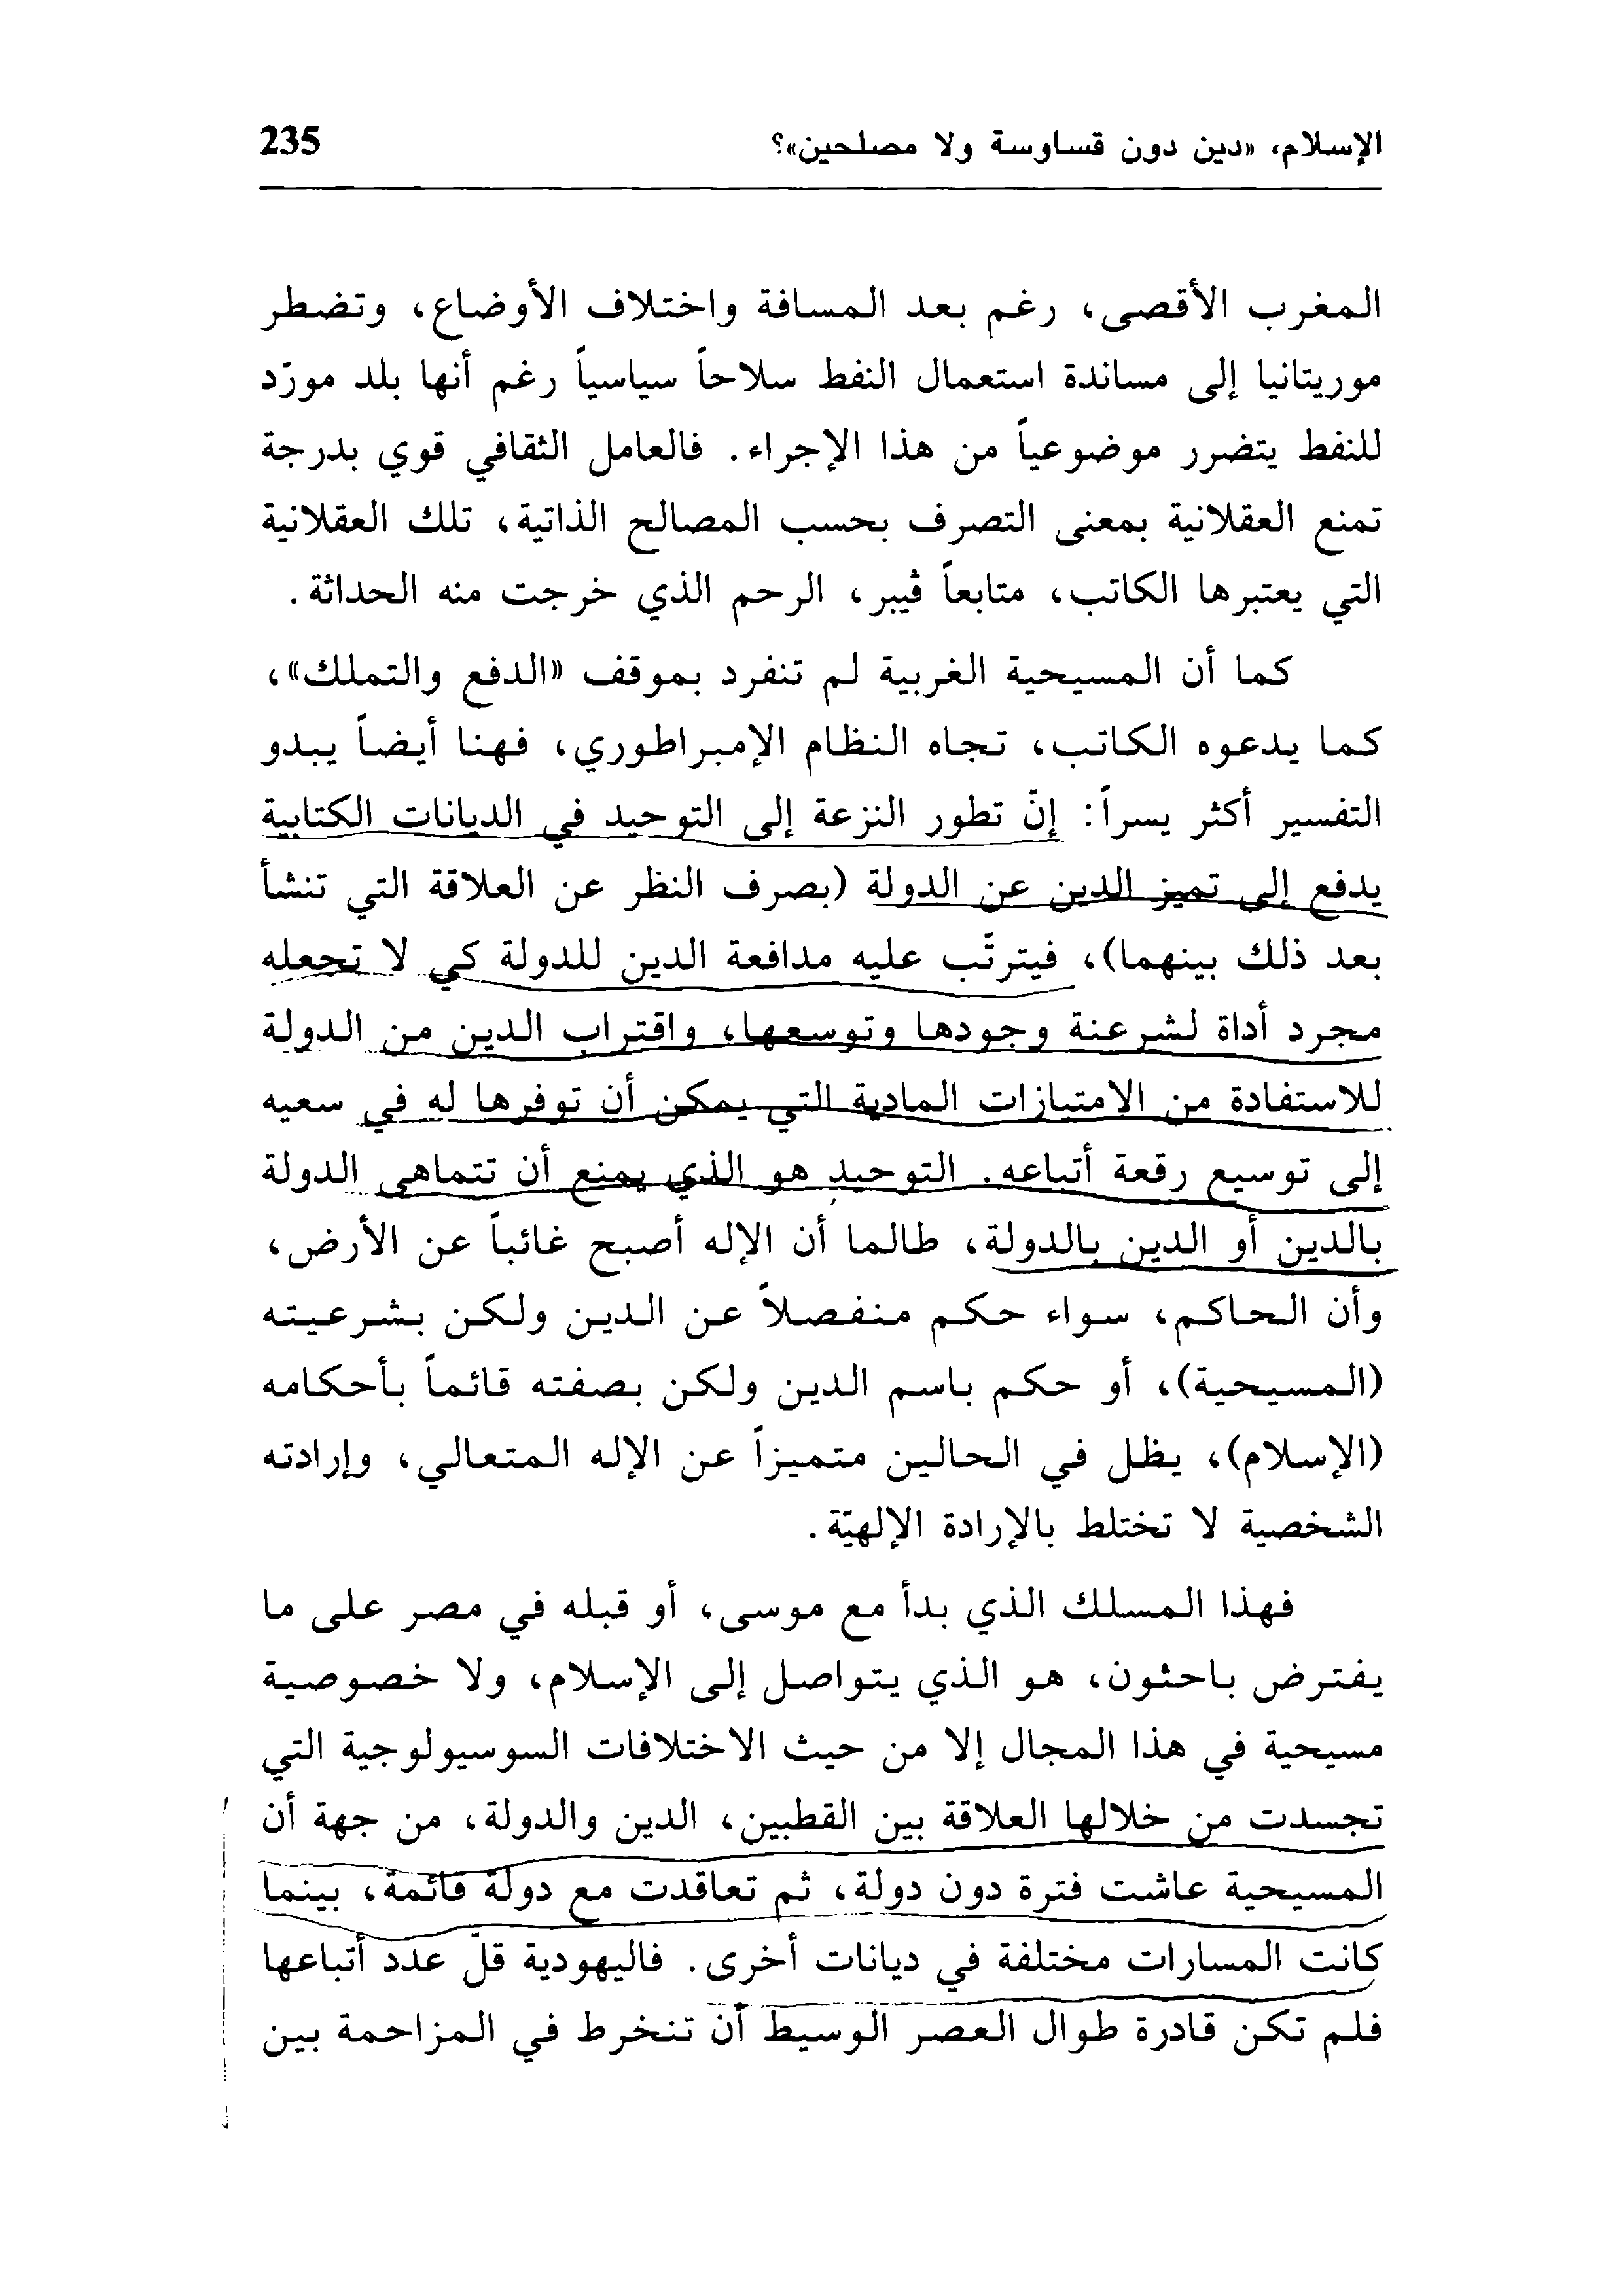 الإسلام، «دين دون قساوسة ولا مصلحين»؟ 235
المغرب الأقصى، رغم بعد المسافة واختلاف الأوضاع، وتضطر
موريتانيا إلى مساندة استعمال النفط سلاحاً سياسياً رغم أنها بلد مورّد
للنفط يتضرر موضوعياً من هذا الإجراء. فالعامل الثقافي قوي بدرجة
تمنع العقلانية بمعنى التصرف بحسب المصالح الذاتية، تلك العقلانية
التي يعتبرها الكاتب، متابعاً ڤيبر، الرحم الذي خرجت منه الحداثة.
كما أن المسيحية الغربية لم تنفرد بموقف «الدفع والتملك»،
كما يدعوه الكاتب، تجاه النظام الإمبراطوري، فهنا أيضاً يبدو
التفسير أكثر يسراً: إنّ تطور النزعة إلى التوحيد في الديانات الكتابية
يدفع إلى تميز الدين عن الدولة (بصرف النظر عن العلاقة التي تنشأ
بعد ذلك بينهما)، فيترتّب عليه مدافعة الدين للدولة كي لا تجعله
مجرد أداة لشرعنة وجودها وتوسعها، واقتراب الدين من الدولة
للاستفادة من الامتيازات المادية التي يمكن أن توفرها له في سعيه
إلى توسيع رقعة أتباعه. التوحيد هو الذي يمنع أن تتماهى الدولة
بالدين أو الدين بالدولة، طالما أن الإله أصبح غائباً عن الأرض،
وأن الحاكم، سواء حكم منفصلاً عن الدين ولكن بشرعيته
(المسيحية)، أو حكم باسم الدين ولكن بصفته قائماً بأحكامه
(الإسلام)، يظل في الحالين متميزاً عن الإله المتعالي، وإرادته
الشخصية لا تختلط بالإرادة الإلهيّة.
فهذا المسلك الذي بدأ مع موسى، أو قبله في مصر على ما
يفترض باحثون، هو الذي يتواصل إلى الإسلام، ولا خصوصية
مسيحية في هذا المجال إلا من حيث الاختلافات السوسيولوجية التي
تجسدت من خلالها العلاقة بين القطبين، الدين والدولة، من جهة أن
المسيحية عاشت فترة دون دولة، ثم تعاقدت مع دولة قائمة، بينما
كانت المسارات مختلفة في ديانات أخرى. فاليهودية قلّ عدد أتباعها
فلم تكن قادرة طوال العصر الوسيط أن تنخرط في المزاحمة بين